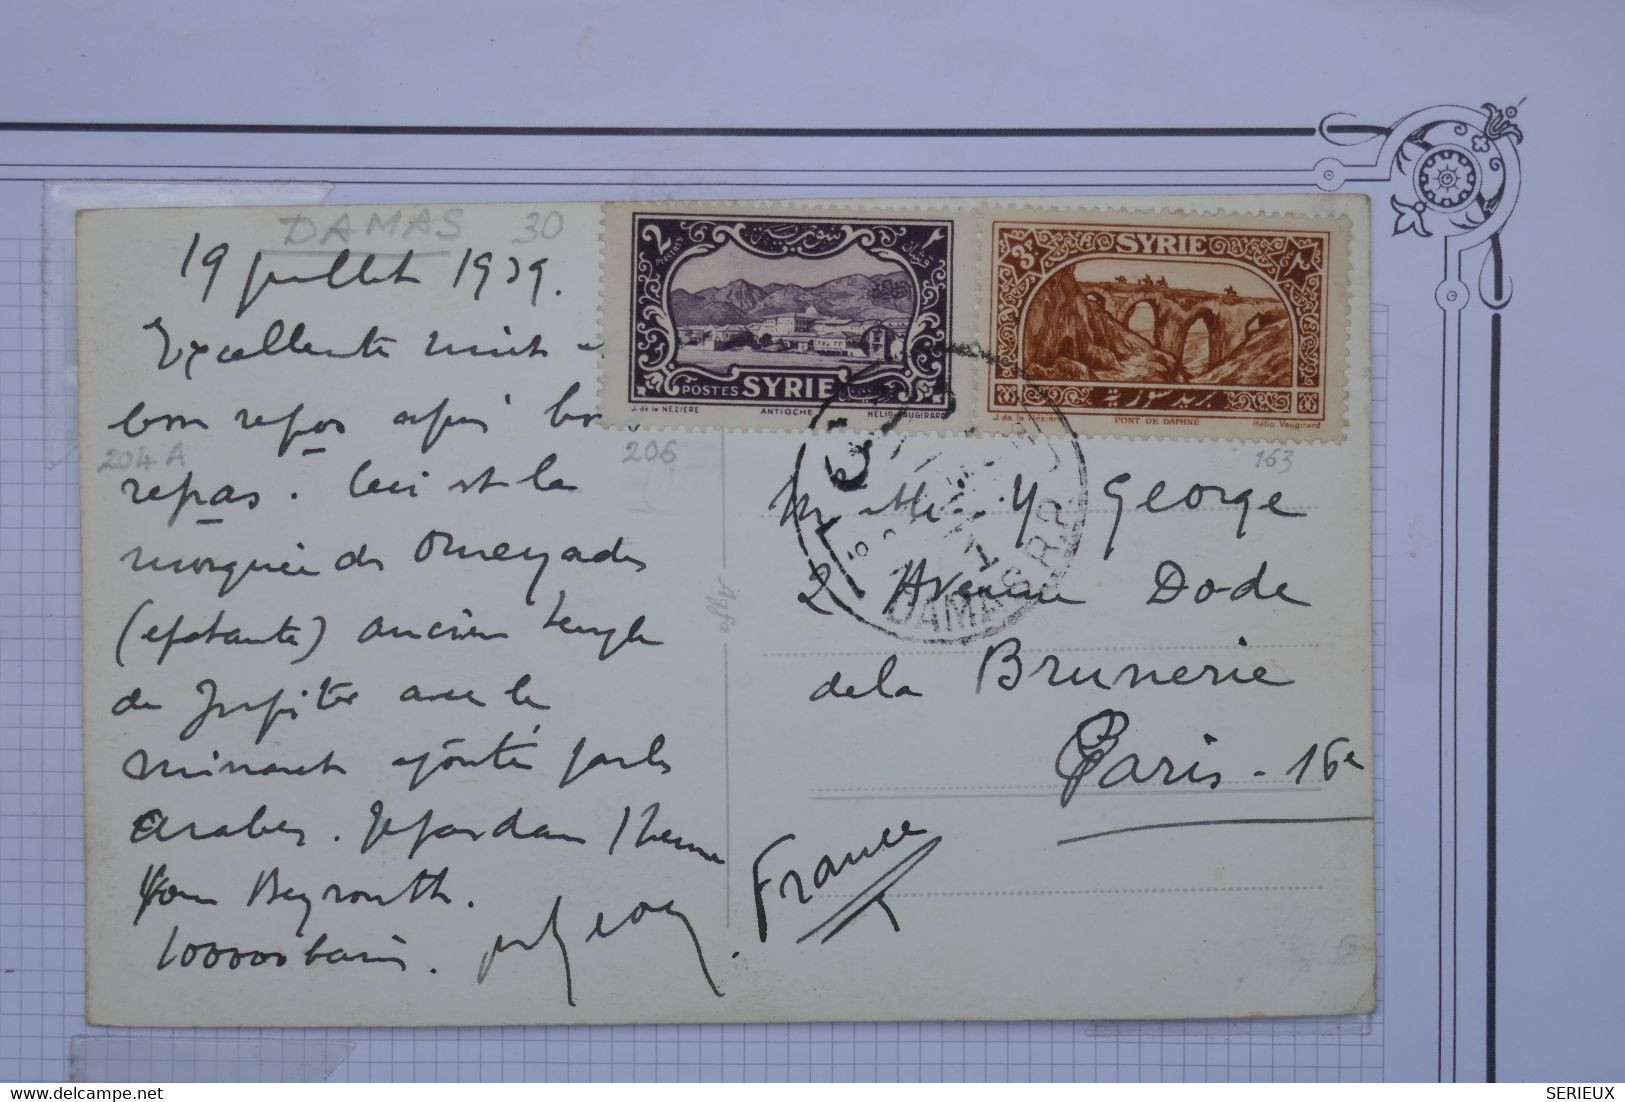 DAMAS 30
19 juillet 1939.
Excellente nuit
bon repos après bon
204 A 206
repas. Ceci est la
mosquée des Omeyades
(épatante) ancien temple
de Jupiter avec le
minaret ajouté par les
Arabes. Je pars dans 1 heure
pour Beyrouth.
100000 baisers.
Agfa
2 PIASTRES
POSTES SYRIE
J. de la NÉZIÈRE ANTIOCHE HELIO VAUGIRARD
3P SYRIE
بريد سورية
J. de la Nézière PONT DE DAPHNÉ Hélio Vaugirard
DAMAS R.P.
163
M. et Me Y George
2 Avenue Dode
de la Brunerie
Paris - 16e
France
SERIEUX